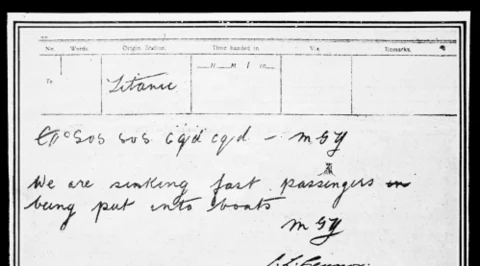 No. Words. Origin Station. Time handed in. Via. Remarks.
To Titanic
SOS SOS cqd cqd - MGY
We are sinking fast passengers
being put into boats
MGY